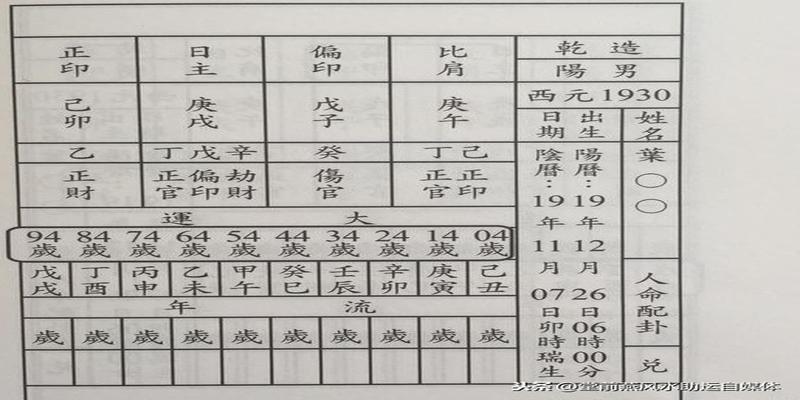 乾造
陽男
西元1930
姓名
葉○○
人命配卦
兌
出生日期
陽曆：19年12月26日06時00分
陰曆：19年11月07日卯時瑞生
比肩 偏印 日主 正印
庚午 戊子 庚戌 己卯
己丁 癸 辛戊丁 乙
正印 正官 傷官 劫財 偏印 正官 正財
大運
04歲 14歲 24歲 34歲 44歲 54歲 64歲 74歲 84歲 94歲
己丑 庚寅 辛卯 壬辰 癸巳 甲午 乙未 丙申 丁酉 戊戌
流年
歲 歲 歲 歲 歲 歲 歲 歲 歲 歲
头条@堂前燕风水助运自媒体